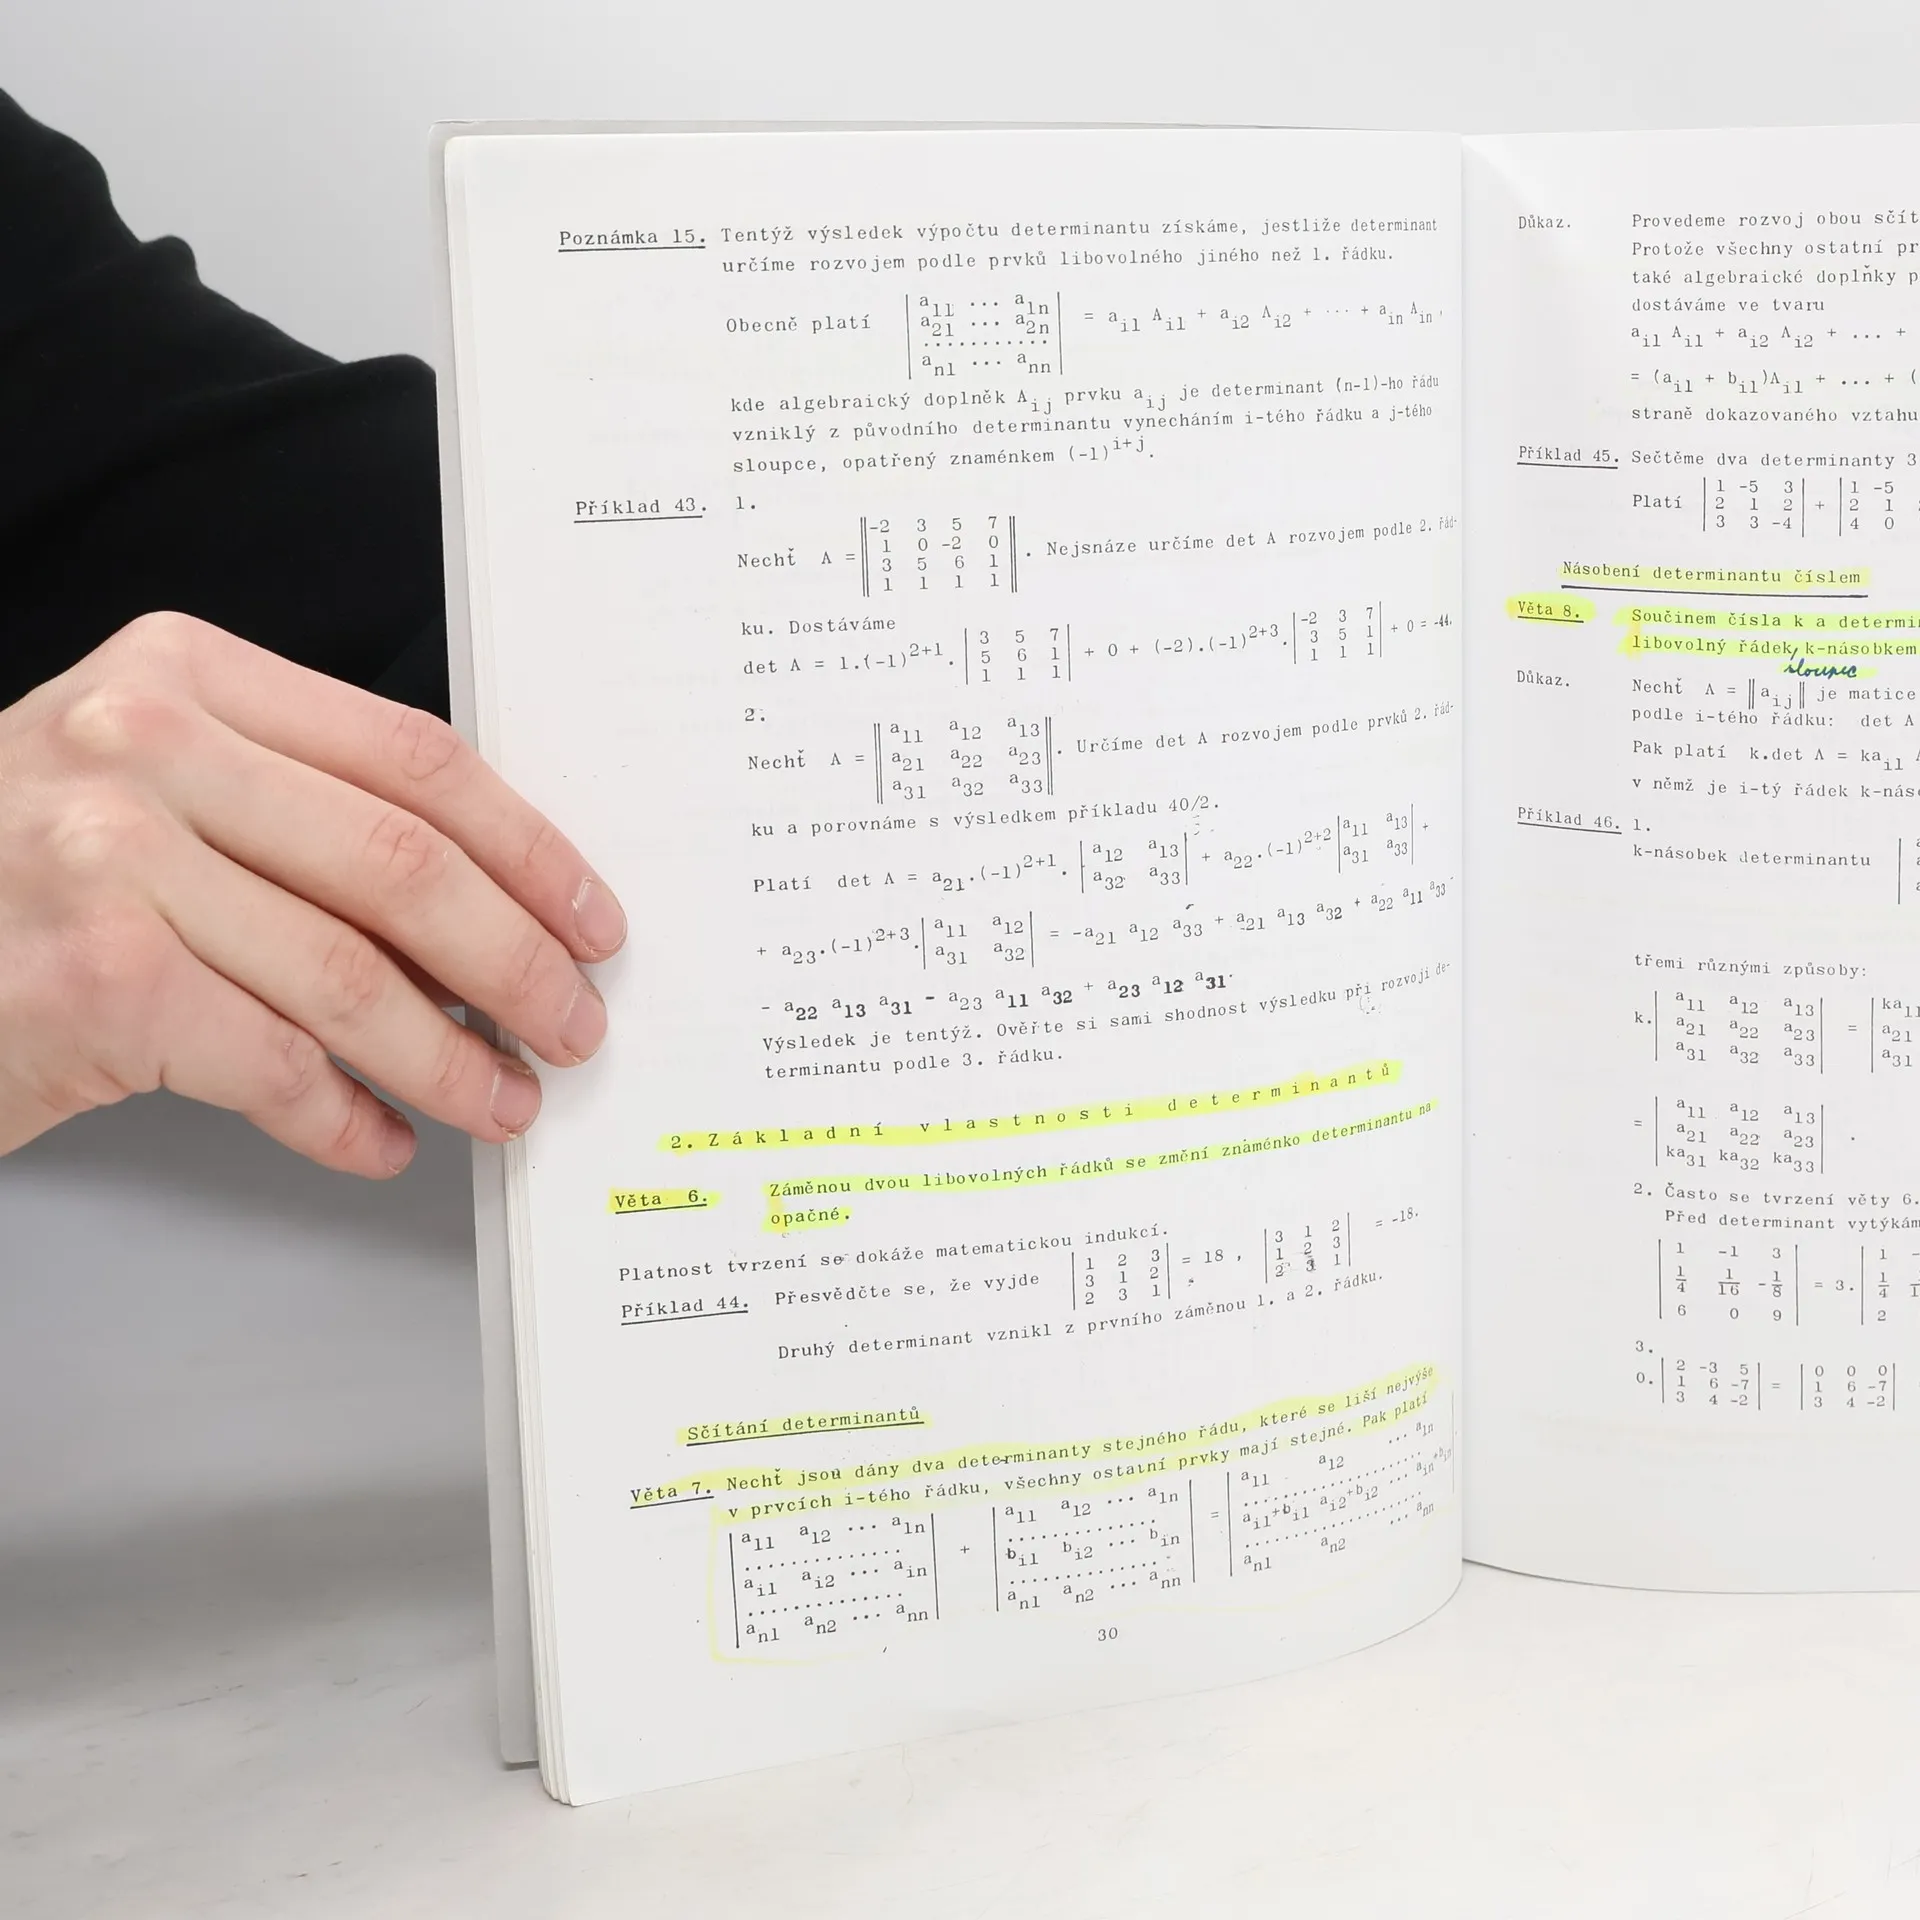 Poznámka 15. Tentýž výsledek výpočtu determinantu získáme, jestliže determinant
určíme rozvojem podle prvků libovolného jiného než 1. řádku.
a11 ... a1n
Obecně platí a21 ... a2n = ai1 Ai1 + ai2 Ai2 + ... + ain Ain,
...........
an1 ... ann
kde algebraický doplněk Aij prvku aij je determinant (n-1)-ho řádu
vzniklý z původního determinantu vynecháním i-tého řádku a j-tého
sloupce, opatřený znaménkem (-1)^i+j.
Příklad 43. 1.
-2 3 5 7
1 0 -2 0
Nechť A = . Nejsnáze určíme det A rozvojem podle 2. řád-
3 5 6 1
1 1 1 1
ku. Dostáváme
3 5 7 -2 3 7
det A = 1.(-1)^2+1. 5 6 1 + 0 + (-2).(-1)^2+3. 3 5 1 + 0 = -44.
1 1 1 1 1 1
2.
a11 a12 a13
Nechť A = a21 a22 a23 . Určíme det A rozvojem podle prvků 2. řád-
a31 a32 a33
ku a porovnáme s výsledkem příkladu 40/2.
Platí det A = a21.(-1)^2+1. | a12 a13 | + a22.(-1)^2+2 | a11 a13 | +
a32 a33 a31 a33
+ a23.(-1)^2+3. | a11 a12 | = -a21 a12 a33 + a21 a13 a32 + a22 a11 a33
a31 a32
- a22 a13 a31 - a23 a11 a32 + a23 a12 a31.
Výsledek je tentýž. Ověřte si sami shodnost výsledku při rozvoji de-
terminantu podle 3. řádku.
2. Základní vlastnosti determinantů
Věta 6. Záměnou dvou libovolných řádků se změní znaménko determinantu na
opačné.
Platnost tvrzení se dokáže matematickou indukcí.
1 2 3 3 1 2
Příklad 44. Přesvědčte se, že vyjde 3 1 2 = 18 , 1 2 3 = -18.
2 3 1 2 3 1
Druhý determinant vznikl z prvního záměnou 1. a 2. řádku.
Sčítání determinantů
Věta 7. Nechť jsou dány dva determinanty stejného řádu, které se liší nejvýše
v prvcích i-tého řádku, všechny ostatní prvky mají stejné. Pak platí
a11 a12 ... a1n a11 a12 ... a1n a11 a12 ... a1n
.............. .............. ..............
ai1 ai2 ... ain + bi1 bi2 ... bin = ai1+bi1 ai2+bi2 ... ain+bin
.............. .............. ..............
an1 an2 ... ann an1 an2 ... ann an1 an2 ... ann
30
Důkaz. Provedeme rozvoj obou sčít
Protože všechny ostatní pr
také algebraické doplňky p
dostáváme ve tvaru
ai1 Ai1 + ai2 Ai2 + ... +
= (ai1 + bi1)Ai1 + ... + (
straně dokazovaného vztahu
Příklad 45. Sečtěme dva determinanty 3
1 -5 3 1 -5
Platí 2 1 2 + 2 1
3 3 -4 4 0
Násobení determinantu číslem
Věta 8. Součinem čísla k a determi
libovolný řádek, k-násobkem
sloupec
Důkaz. Nechť A = ‖aij‖ je matice
podle i-tého řádku: det A
Pak platí k.det A = kai1
v němž je i-tý řádek k-náso
Příklad 46. 1.
k-násobek determinantu
třemi různými způsoby:
a11 a12 a13 ka11
k. a21 a22 a23 = a21
a31 a32 a33 a31
a11 a12 a13
= a21 a22 a23 .
ka31 ka32 ka33
2. Často se tvrzení věty 6.
Před determinant vytýkám
1 -1 3 1
1/4 1/16 -1/8 = 3. 1/4
6 0 9 2
3.
2 -3 5 0 0 0
0. 1 6 -7 = 1 6 -7
3 4 -2 3 4 -2